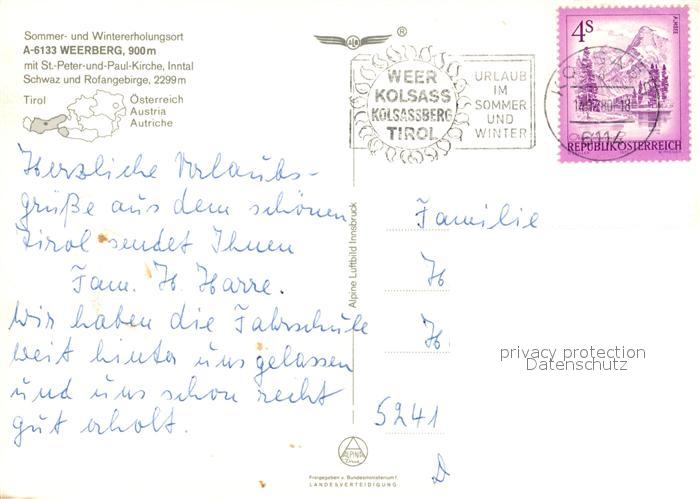 Sommer- und Wintererholungsort
A-6133 WEERBERG, 900m
mit St.-Peter-und-Paul-Kirche, Inntal
Schwaz und Rofangebirge, 2299m
Tirol
Österreich
Austria
Autriche
®
WEER
KOLSASS
KOLSASSBERG
TIROL
URLAUB
IM
SOMMER
UND
WINTER
4S
6114
REPUBLIK ÖSTERREICH
Herzliche Urlaubs-
grüße aus dem schönen
Tirol sendet Ihnen
Fam. H. Harre.
Wir haben die Fahrschule
weit hinter uns gelassen
und uns schon recht
gut erholt.
Alpine Luftbild Innsbruck
Familie
H
H.
5241
D
privacy protection
Datenschutz
ALPINE
Freigegeben v. Bundesministerium f.
LANDESVERTEIDIGUNG